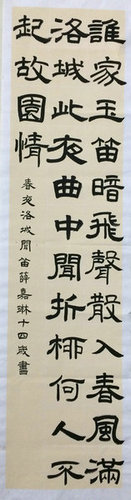 誰家玉笛暗飛聲散入春風滿
洛城此夜曲中聞折柳何人不
起故園情
春夜洛城聞笛薛嘉琳十四歲書